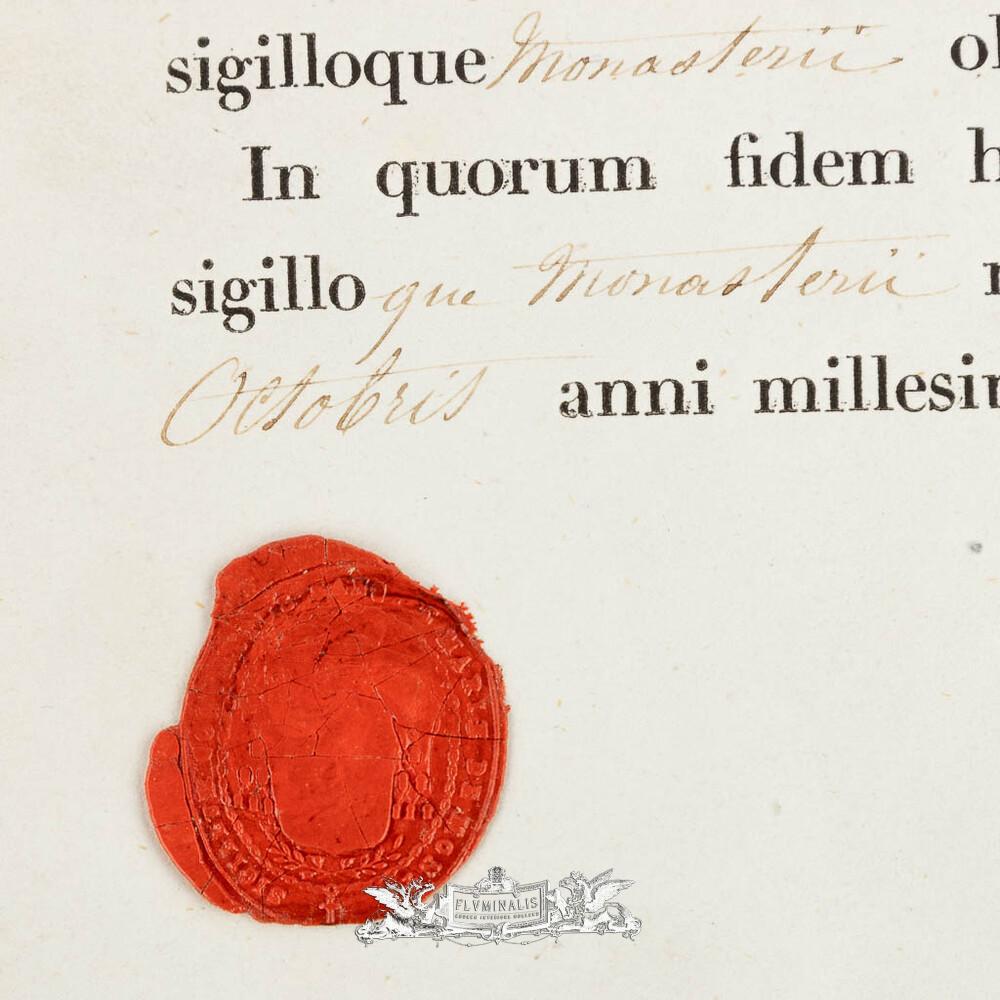 sigilloque Monasterii
In quorum fidem
sigilloque Monasterii
Octobris anni
FLVMINALIS